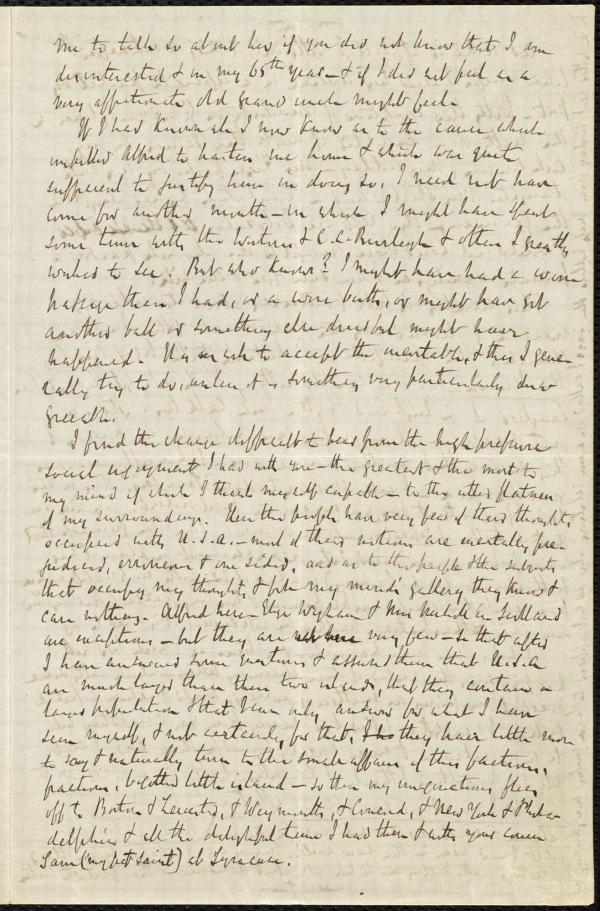 me to talk so about her if you did not know that I am
disinterested & in my 65th year - & if I did not feel as a
very affectionate old grand uncle might feel.
If I had known all I now know as to the cause which
impelled Alfred to hasten me home & which was quite
sufficient to justify him in doing so, I need not have
come for another month - in which I might have spent
some time with the & C. C. Burleigh & others I greatly
wished to see. But who knows? I might have had a worse
passage than I had, or a worse berth, or might have got
another fall or something else dreadful might have
happened. It is wise to accept the inevitable, & this I gene-
rally try to do, unless it is something very particularly disa-
greeable.
I find the change difficult to bear from the high pressure
social enjoyment I had with you - the greatest & the most to
my mind of which I think myself capable - to the utter flatness
of my surroundings. Here the people have very few of their thoughts
occupied with U.S.A. - most of their notions are mentally pre-
judiced, erroneous & one sided, and as to the people & the subjects
that occupy my thoughts & fill my mind's gallery they know &
care nothing. Alfred here - Eliza Wigham & Mrs in Scotland
are exceptions - but they are very few - so that after
I have answered some questions & assured them that U.S.A
are much larger than these two islands, that they contain a
larger population & that I can only answer for what I have
seen myself, & not certainly for that, they have little more
to say & naturally turn to the small affairs of this factious,
fractious, bigotted little island - so then my imagination flies
off to Boston & Leicester, & Weymouth, & Concord, & New York & Phila-
delphia & all the delightful time I had there & with your cousin
Sam (my pet saint) at Syracuse.